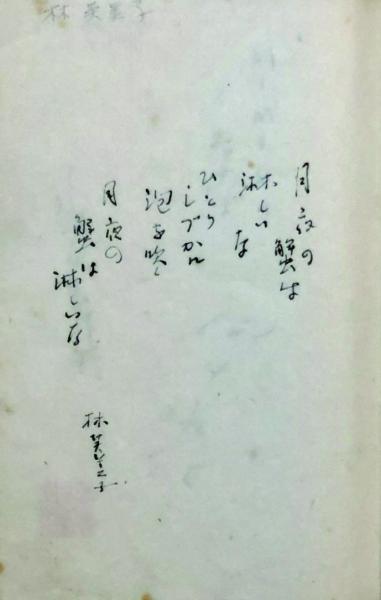 林芙美子
月夜の
蟹は
淋しいな
ひとり
しづかに
泡を吹く
月夜の
蟹は
淋しいな
林芙美子